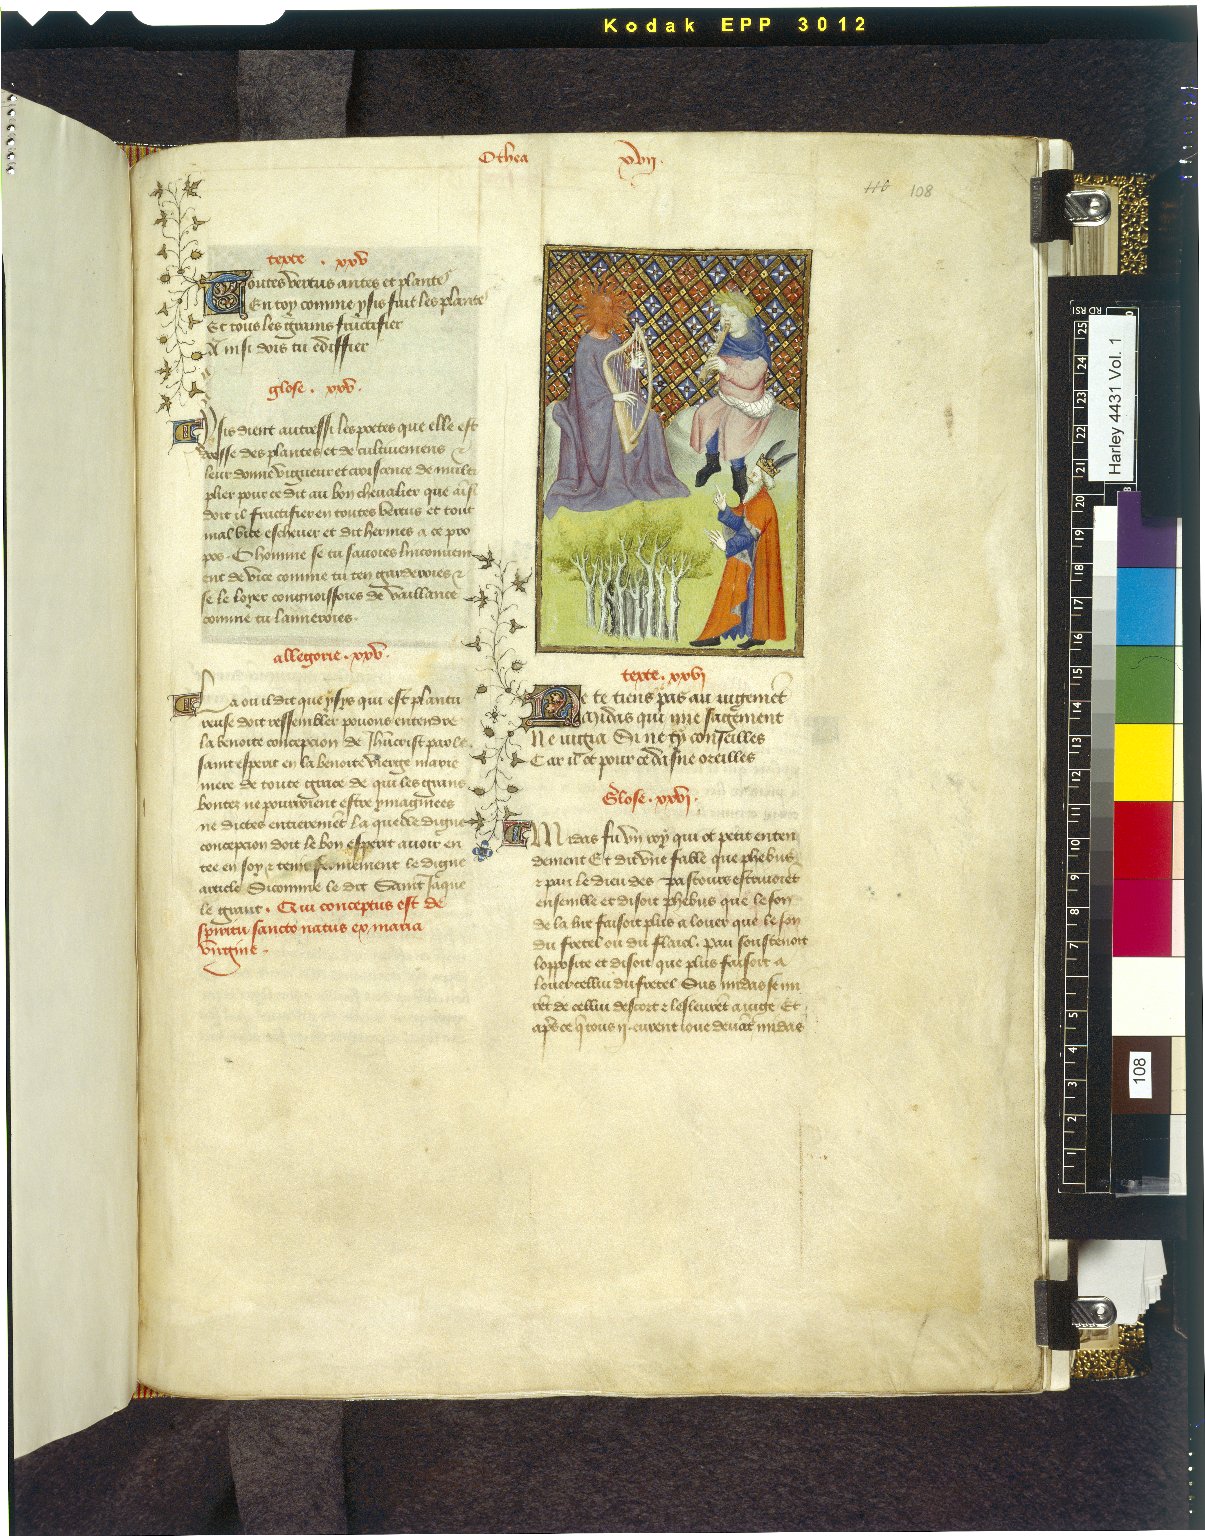 Kodak EPP 3012
Othea xvii.
116 108
texte . xxv
Toutes vertus antes et plante
En toy comme ysis fait les plante
Et tous les grains fructifier
Ainsi dois tu ediffier
glose . xxv.
Ysis dient autressi les poetes que elle est
deesse des plantes et de cultivemens et
leur donne vigueur et croiscance de multi
plier pour ce dit au bon chevalier que aisi
doit il fructifier en toutes vertus et tout
mal vice eschever et dit hermes a ce pro
pos. O homme se tu savoies linconveni
ent de vice comme tu ten garderoies et
se le loyer congnoissoies de vaillance
comme tu lameroies.
allegorie . xxv.
La ou il dit que ysys qui est plantu
reuse doit ressembler povons entendre
la benoite concepcion de Jhucrist par le
saint esperit en la benoite vierge marie
mere de toute grace de qui les grans
bontez ne pourroient estre ymaginees
ne dictes entierement la quelle digne
concepcion doit le bon esperit avoir en
tee en soy et tenir fermement le digne
article Si comme le dit Saint Jaque
le grant. Qui conceptus est de
spiritu sancto natus ex maria
virgine.
texte . xxvi
Ne te tiens pas au jugemet
Midas qui mie sagement
Ne juga Si ne ty conseilles
Car il ot pour ce dasne oreilles
Glose . xxvi.
Midas fu un roy qui ot petit enten
dement Et dit une fable que phebus
et pan le dieu des pastours estrivoiet
ensemble et disoit phebus que le son
de la lire faisoit plus a louer que le son
du fretel ou du flaiol. Pan soustenoit
lopposite et disoit que plus faisoit a
louer cellui du fretel Sus midas se mi
ret de cellui descort et les leuret a juge Et
aps ce q tous ii. eurent joue devat midas
Harley 4431 Vol. 1
108